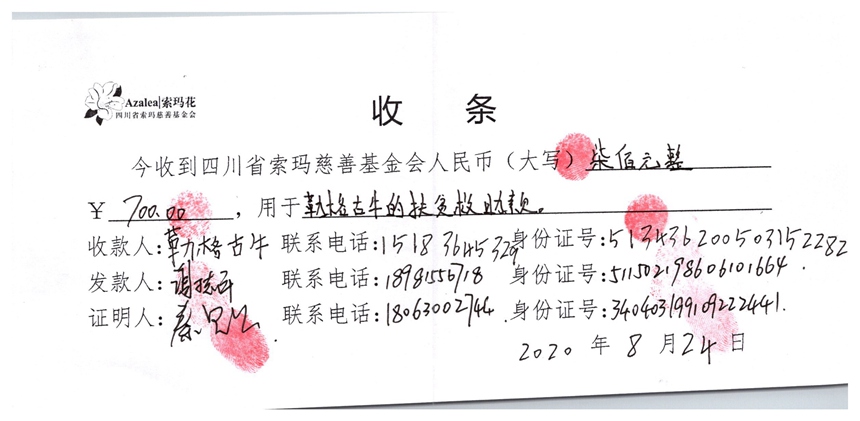 Azalea|索玛花
四川省索玛慈善基金会
收 条
今收到四川省索玛慈善基金会人民币（大写）柒佰元整
¥ 700.00 ，用于勒格古牛的扶贫救助款。
收款人：勒格古牛 联系电话：15183645329 身份证号：513436200503152282
发款人： 联系电话：18981556718 身份证号：511502198606101664.
证明人：秦 联系电话：18063002744. 身份证号：340403199109222441.
2020 年 8 月 24 日